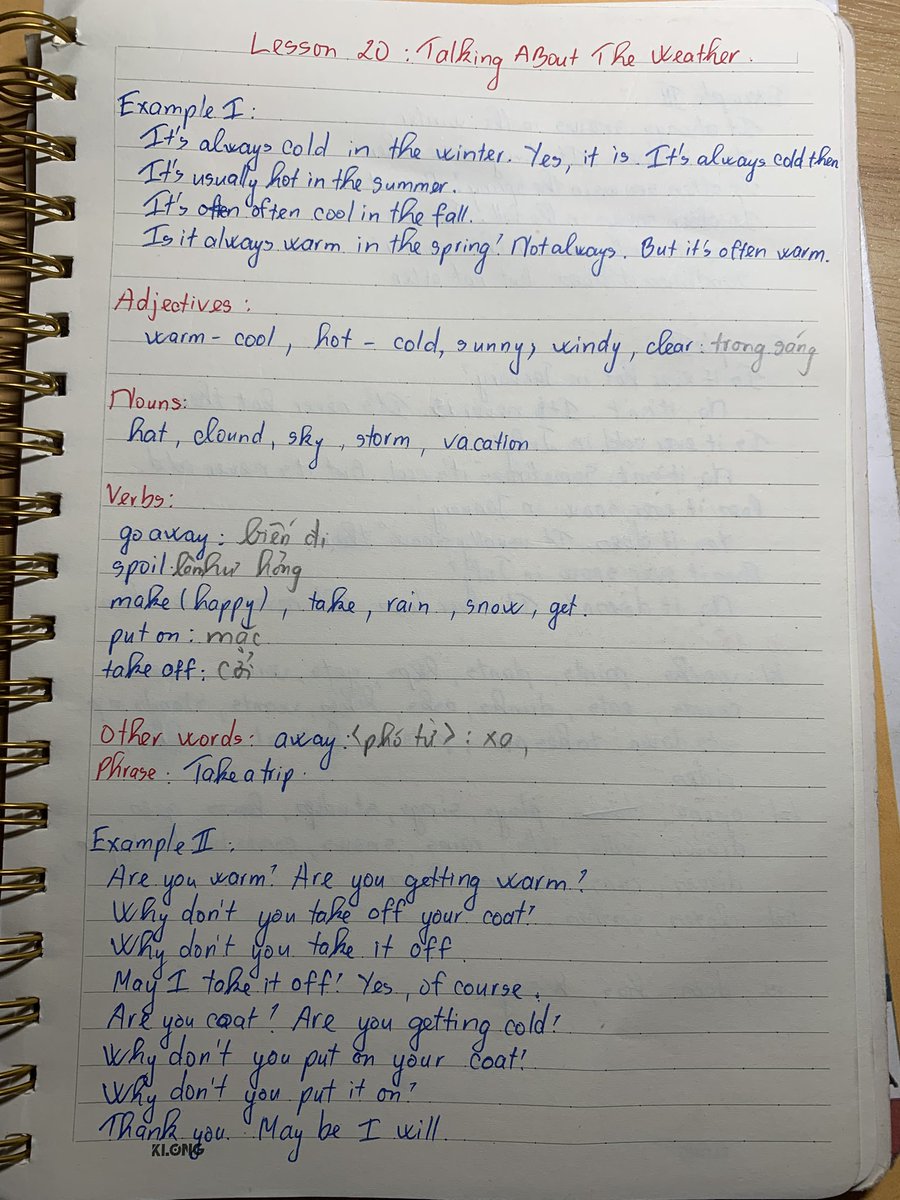 Lesson 20 : Talking About The Weather.
Example I :
It's always cold in the winter. Yes, it is. It's always cold then
It's usually hot in the summer.
It's often cool in the fall.
Is it always warm in the spring? Not always. But it's often warm.
Adjectives :
warm - cool, hot - cold, sunny, windy, clear : trong sáng
Nouns:
hat, clound, sky, storm, vacation
Verbs:
go away : biến đi
spoil : làm hư hỏng
make (happy), take, rain, snow, get.
put on : mặc
take off : cởi
Other words: away : <phó từ> : xa,
Phrase : Take a trip.
Example II :
Are you warm? Are you getting warm?
Why don't you take off your coat?
Why don't you take it off
May I take it off? Yes, of course.
Are you coat? Are you getting cold?
Why don't you put on your coat?
Why don't you put it on?
Thank you. May be I will
KLONG